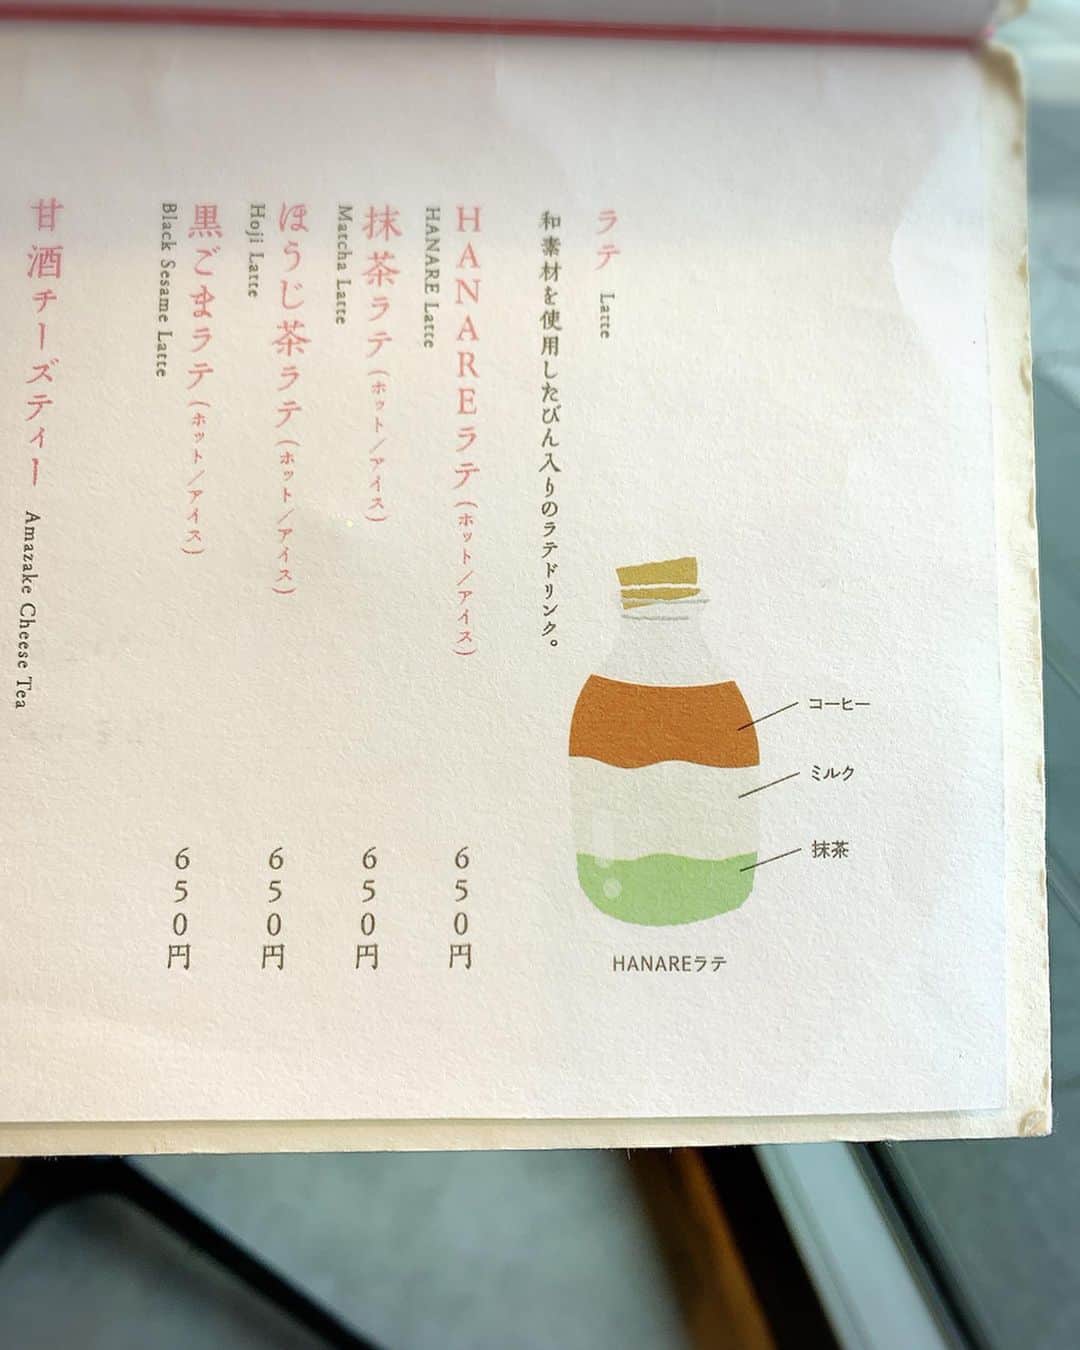 ラテ Latte
和素材を使用したびん入りのラテドリンク。
HANAREラテ(ホット/アイス) 650円
HANARE Latte
抹茶ラテ(ホット/アイス) 650円
Matcha Latte
ほうじ茶ラテ(ホット/アイス) 650円
Hoji Latte
黒ごまラテ(ホット/アイス) 650円
Black Sesame Latte
甘酒チーズティー Amazake Cheese Tea
コーヒー
ミルク
抹茶
HANAREラテ